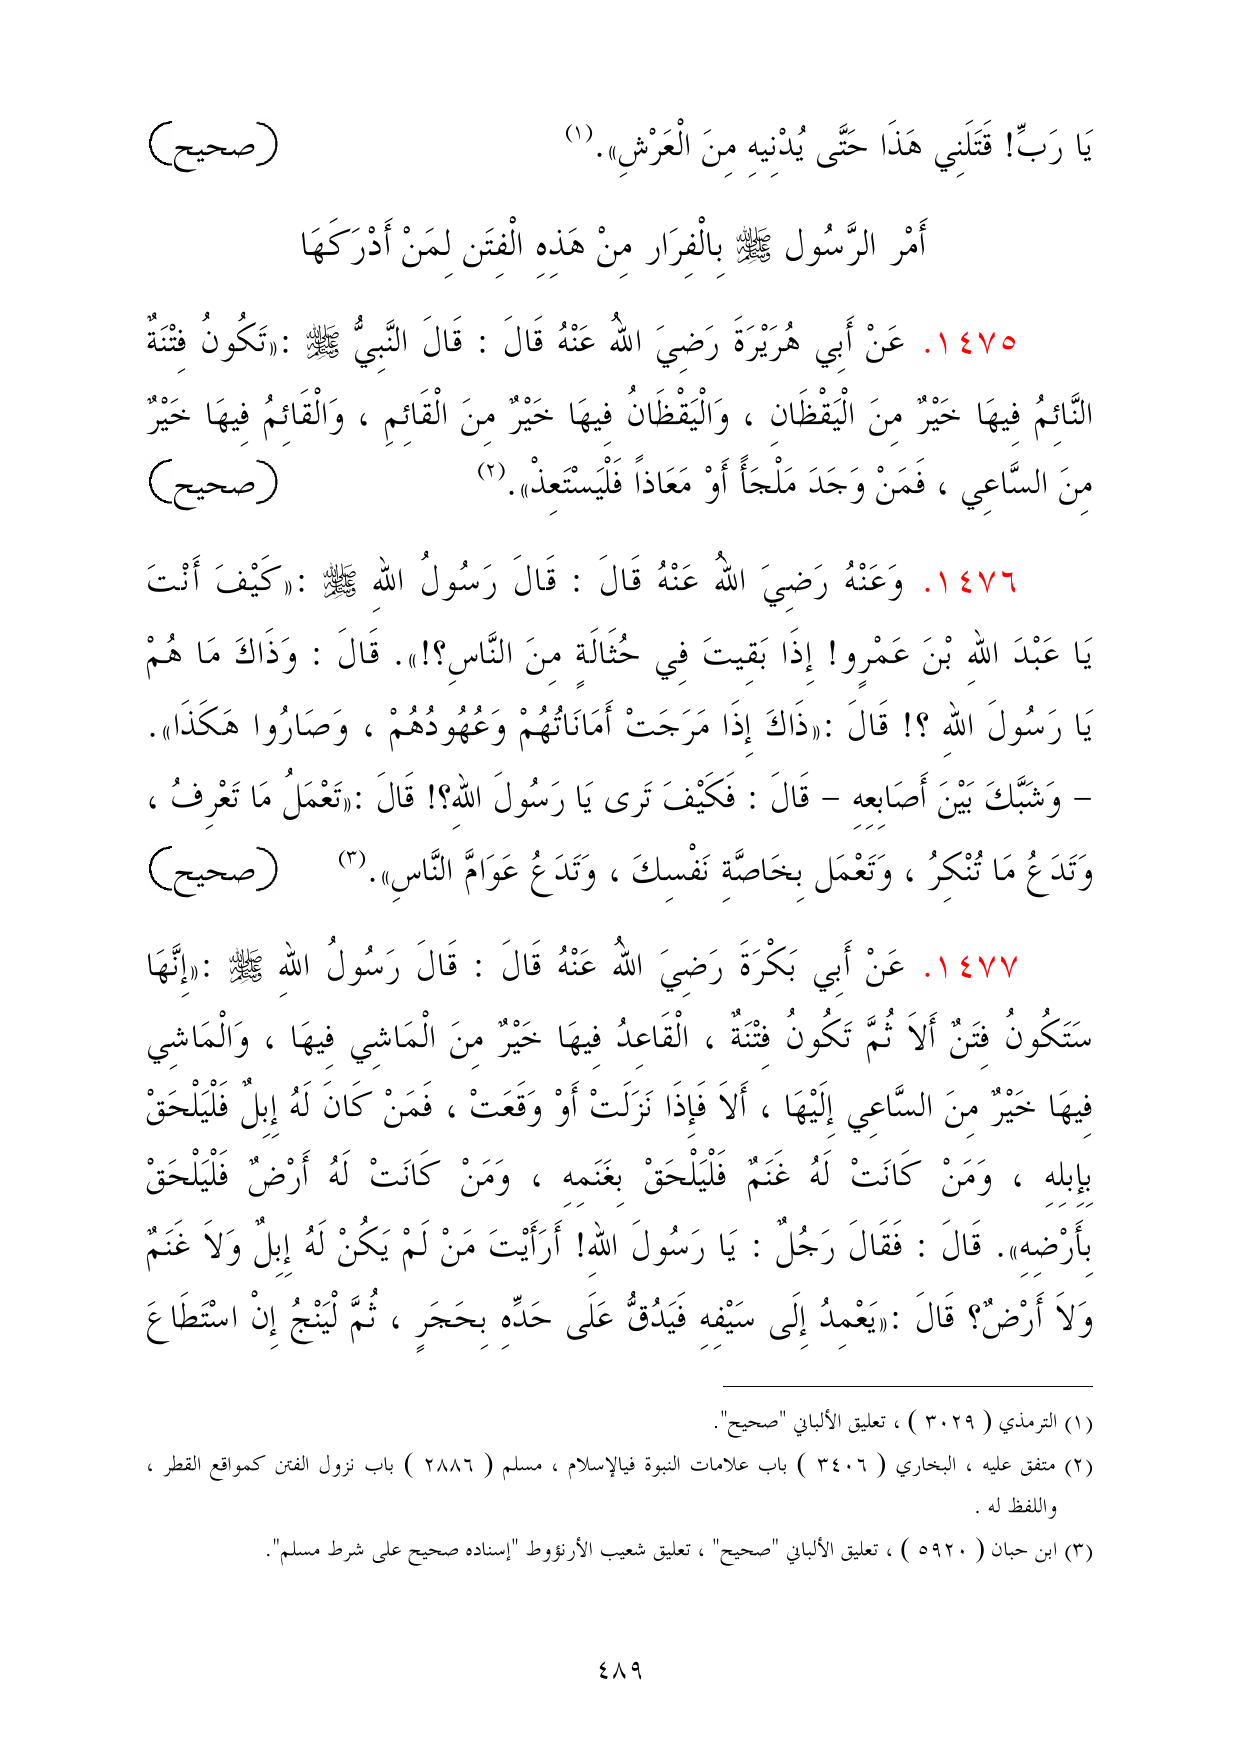 يَا رَبِّ! قَتَلَنِي هَذَا حَتَّى يُدْنِيهِ مِنَ الْعَرْشِ».(١) (صحيح)
أَمْر الرَّسُول ﷺ بِالْفِرَار مِنْ هَذِهِ الْفِتَن لِمَنْ أَدْرَكَهَا
١٤٧٥. عَنْ أَبِي هُرَيْرَةَ رَضِيَ اللهُ عَنْهُ قَالَ : قَالَ النَّبِيُّ ﷺ :«تَكُونُ فِتْنَةٌ
النَّائِمُ فِيهَا خَيْرٌ مِنَ الْيَقْظَانِ ، وَالْيَقْظَانُ فِيهَا خَيْرٌ مِنَ الْقَائِمِ ، وَالْقَائِمُ فِيهَا خَيْرٌ
مِنَ السَّاعِي ، فَمَنْ وَجَدَ مَلْجَأً أَوْ مَعَاذاً فَلْيَسْتَعِذْ».(٢) (صحيح)
١٤٧٦. وَعَنْهُ رَضِيَ اللهُ عَنْهُ قَالَ : قَالَ رَسُولُ اللهِ ﷺ :«كَيْفَ أَنْتَ
يَا عَبْدَ اللهِ بْنَ عَمْرٍو! إِذَا بَقِيتَ فِي حُثَالَةٍ مِنَ النَّاسِ؟!». قَالَ : وَذَاكَ مَا هُمْ
يَا رَسُولَ اللهِ ؟! قَالَ :«ذَاكَ إِذَا مَرَجَتْ أَمَانَاتُهُمْ وَعُهُودُهُمْ ، وَصَارُوا هَكَذَا».
– وَشَبَّكَ بَيْنَ أَصَابِعِهِ – قَالَ : فَكَيْفَ تَرى يَا رَسُولَ اللهِ؟! قَالَ :«تَعْمَلُ مَا تَعْرِفُ ،
وَتَدَعُ مَا تُنْكِرُ ، وَتَعْمَل بِخَاصَّةِ نَفْسِكَ ، وَتَدَعُ عَوَامَّ النَّاسِ».(٣) (صحيح)
١٤٧٧. عَنْ أَبِي بَكْرَةَ رَضِيَ اللهُ عَنْهُ قَالَ : قَالَ رَسُولُ اللهِ ﷺ :«إِنَّهَا
سَتَكُونُ فِتَنٌ أَلاَ ثُمَّ تَكُونُ فِتْنَةٌ ، الْقَاعِدُ فِيهَا خَيْرٌ مِنَ الْمَاشِي فِيهَا ، وَالْمَاشِي
فِيهَا خَيْرٌ مِنَ السَّاعِي إِلَيْهَا ، أَلاَ فَإِذَا نَزَلَتْ أَوْ وَقَعَتْ ، فَمَنْ كَانَ لَهُ إِبِلٌ فَلْيَلْحَقْ
بِإِبِلِهِ ، وَمَنْ كَانَتْ لَهُ غَنَمٌ فَلْيَلْحَقْ بِغَنَمِهِ ، وَمَنْ كَانَتْ لَهُ أَرْضٌ فَلْيَلْحَقْ
بِأَرْضِهِ». قَالَ : فَقَالَ رَجُلٌ : يَا رَسُولَ اللهِ! أَرَأَيْتَ مَنْ لَمْ يَكُنْ لَهُ إِبِلٌ وَلاَ غَنَمٌ
وَلاَ أَرْضٌ؟ قَالَ :«يَعْمِدُ إِلَى سَيْفِهِ فَيَدُقُّ عَلَى حَدِّهِ بِحَجَرٍ ، ثُمَّ لْيَنْجُ إِنْ اسْتَطَاعَ
(١) الترمذي ( ٣٠٢٩ ) ، تعليق الألباني "صحيح".
(٢) متفق عليه ، البخاري ( ٣٤٠٦ ) باب علامات النبوة فيالإسلام ، مسلم ( ٢٨٨٦ ) باب نزول الفتن كمواقع القطر ،
واللفظ له .
(٣) ابن حبان ( ٥٩٢٠ ) ، تعليق الألباني "صحيح" ، تعليق شعيب الأرنؤوط "إسناده صحيح على شرط مسلم".
٤٨٩